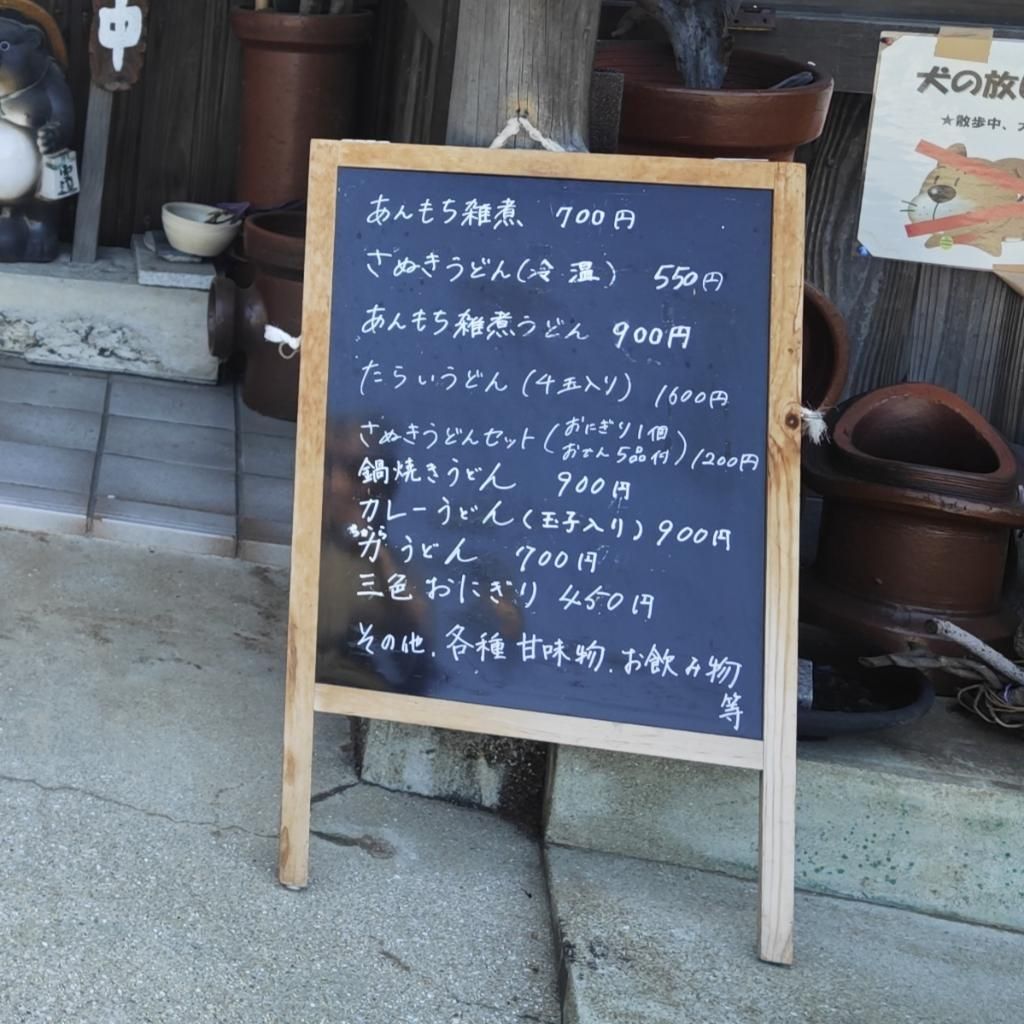 中
犬の放
★散歩中、
あんもち雑煮 700円
さぬきうどん(冷 温) 550円
あんもち雑煮うどん 900円
たらいうどん(4玉入り) 1600円
さぬきうどんセット(おにぎり1個 おでん5品付)1200円
鍋焼きうどん 900円
カレーうどん(玉子入り)900円
ちから
力うどん 700円
三色おにぎり 450円
その他.各種甘味物.お飲み物
等